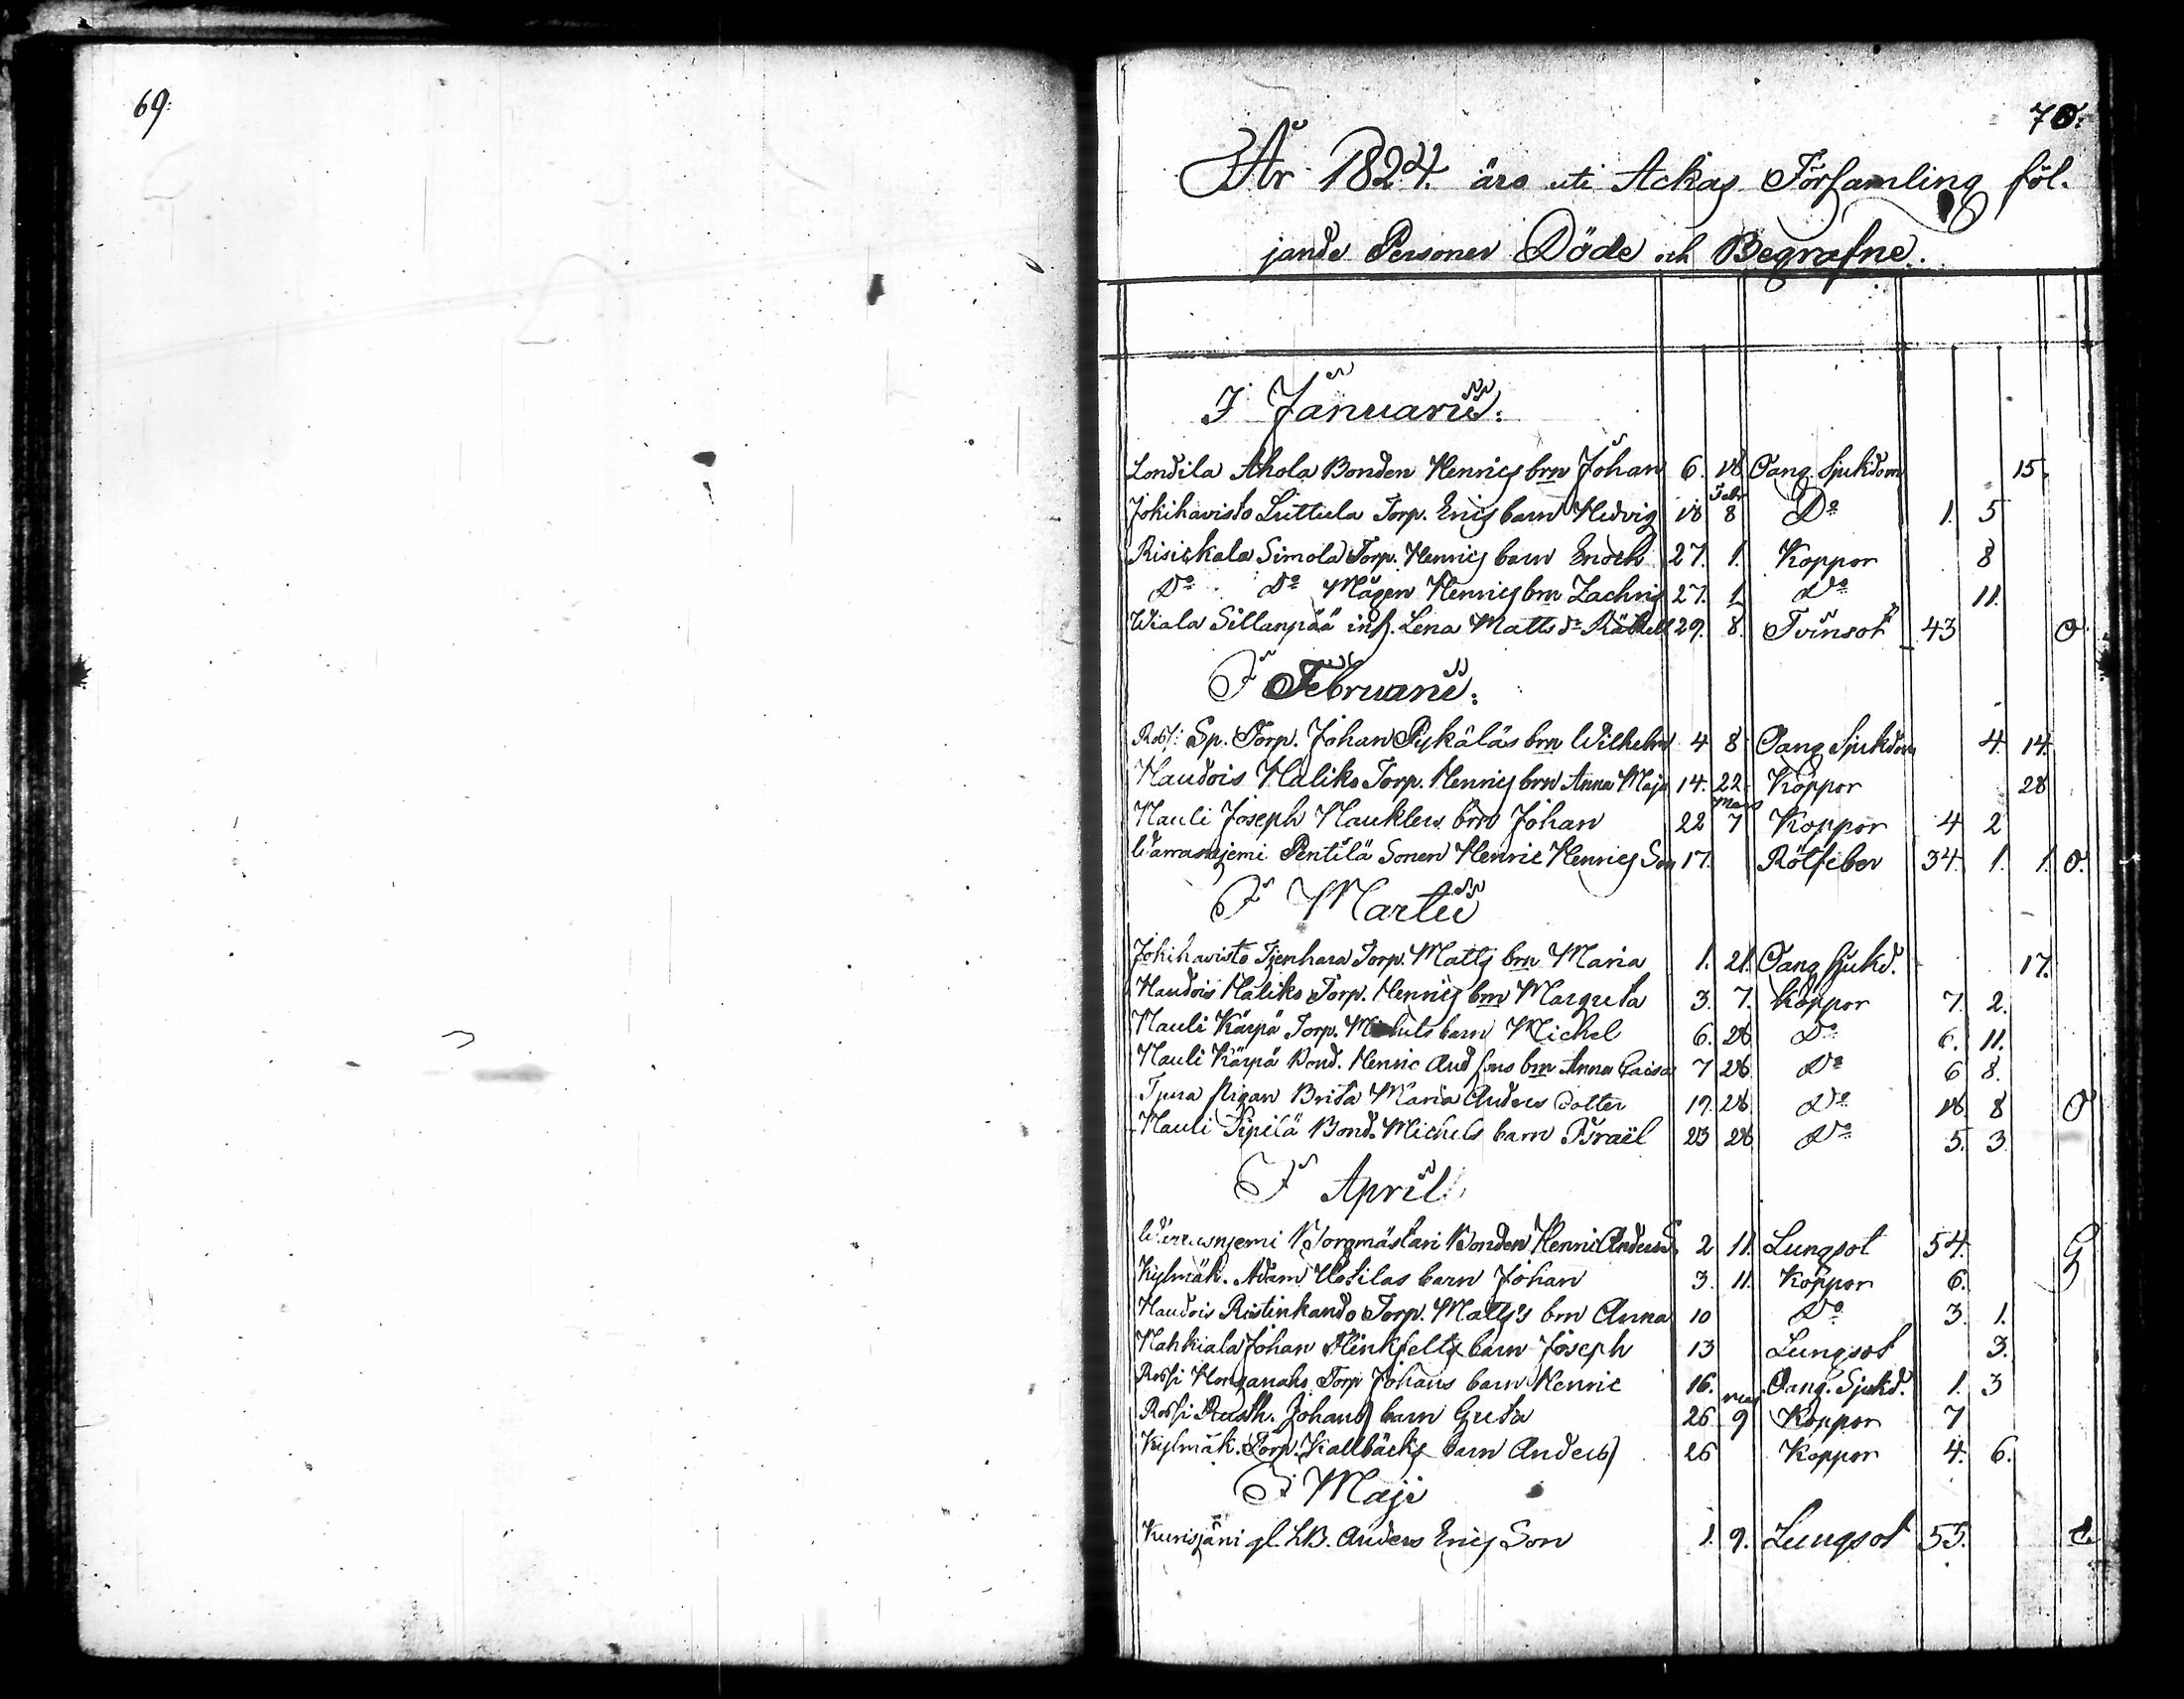 69:
70.
År 1824. äro uti Ackas Församling föl-
jande Personer Döde och Begrafne.
I Januarii:
Londila Ahola Bonden Henrics brn Johan 6. 18. Oang. Sjukdom 15.
Jokihavisto Luttula Torp. Erics barn Hedvig 18 Febr 8 D:o 1. 5
Risickala Simola Torp. Henrics barn Enoch 27. 1. Koppor 8
D:o D:o Mågen Henrics brn Zachris 27. 1. D:o 11.
Wiala Sillanpää inh. Lena Matts d:r 29. 8. Tvinsot 43 O.
I Februarii:
Rossi Sp. Torp. Johan Pykäläs brn Wilhelm 4 8 Oang Sjukdom 4. 14.
Haudois Haliko Torp. Henrics brn Anna Maja 14. 22. Koppor 28
Hauli Joseph Hauklers brn Johan 22 Mars 7 Koppor 4 2
Warrasnjemi Pentilä Sonen Henric Henrics Son 17. Rötfeber 34. 1. 1. O.
I Martii
Jokihavisto Tjenhara Torp. Matts brn Maria 1. 21. Oang Sjukd. 17.
Haudois Haliko Torp. Henrics brn Margreta 3. 7. Koppor 7. 2.
Hauli Kärpä Torp. Michels barn Michel 6. 28 D:o 6. 11.
Hauli Kärpä Bond. Henric And sons brn Anna Caisa 7 28 D:o 6 8.
pigan Brita Maria Anders Dotter 19. 28. D:o 18 8 O
Hauli Pipilä Bond. Michels barn Israël 23 28 D:o 5. 3
I April
Warrasnjemi Borgmästari Bonden Henric Anders S. 2 11. Lungsot 54. G
Kylmäk. Adam Uotilas barn Johan 3. 11. Koppor 6.
Haudois Ristinkando Torp. Matts's brn Anna 10 D:o 3. 1.
Nahkiala Johan Flinkfelts barn Joseph 13 Lungsot 3.
Rossi Honganaho Torp Johans barn Henric 16. Oang. Sjukd. 1. 3
Rossi Rusth. Johans barn Greta 26 maj 9 Koppor 7
Kylmäk. Torp. Kallbäcks barn Anders 26 Koppor 4. 6.
I Maji
Kurisjärvi gl. LB. Anders Erics Son 1. 9. Lungsot 55. E.